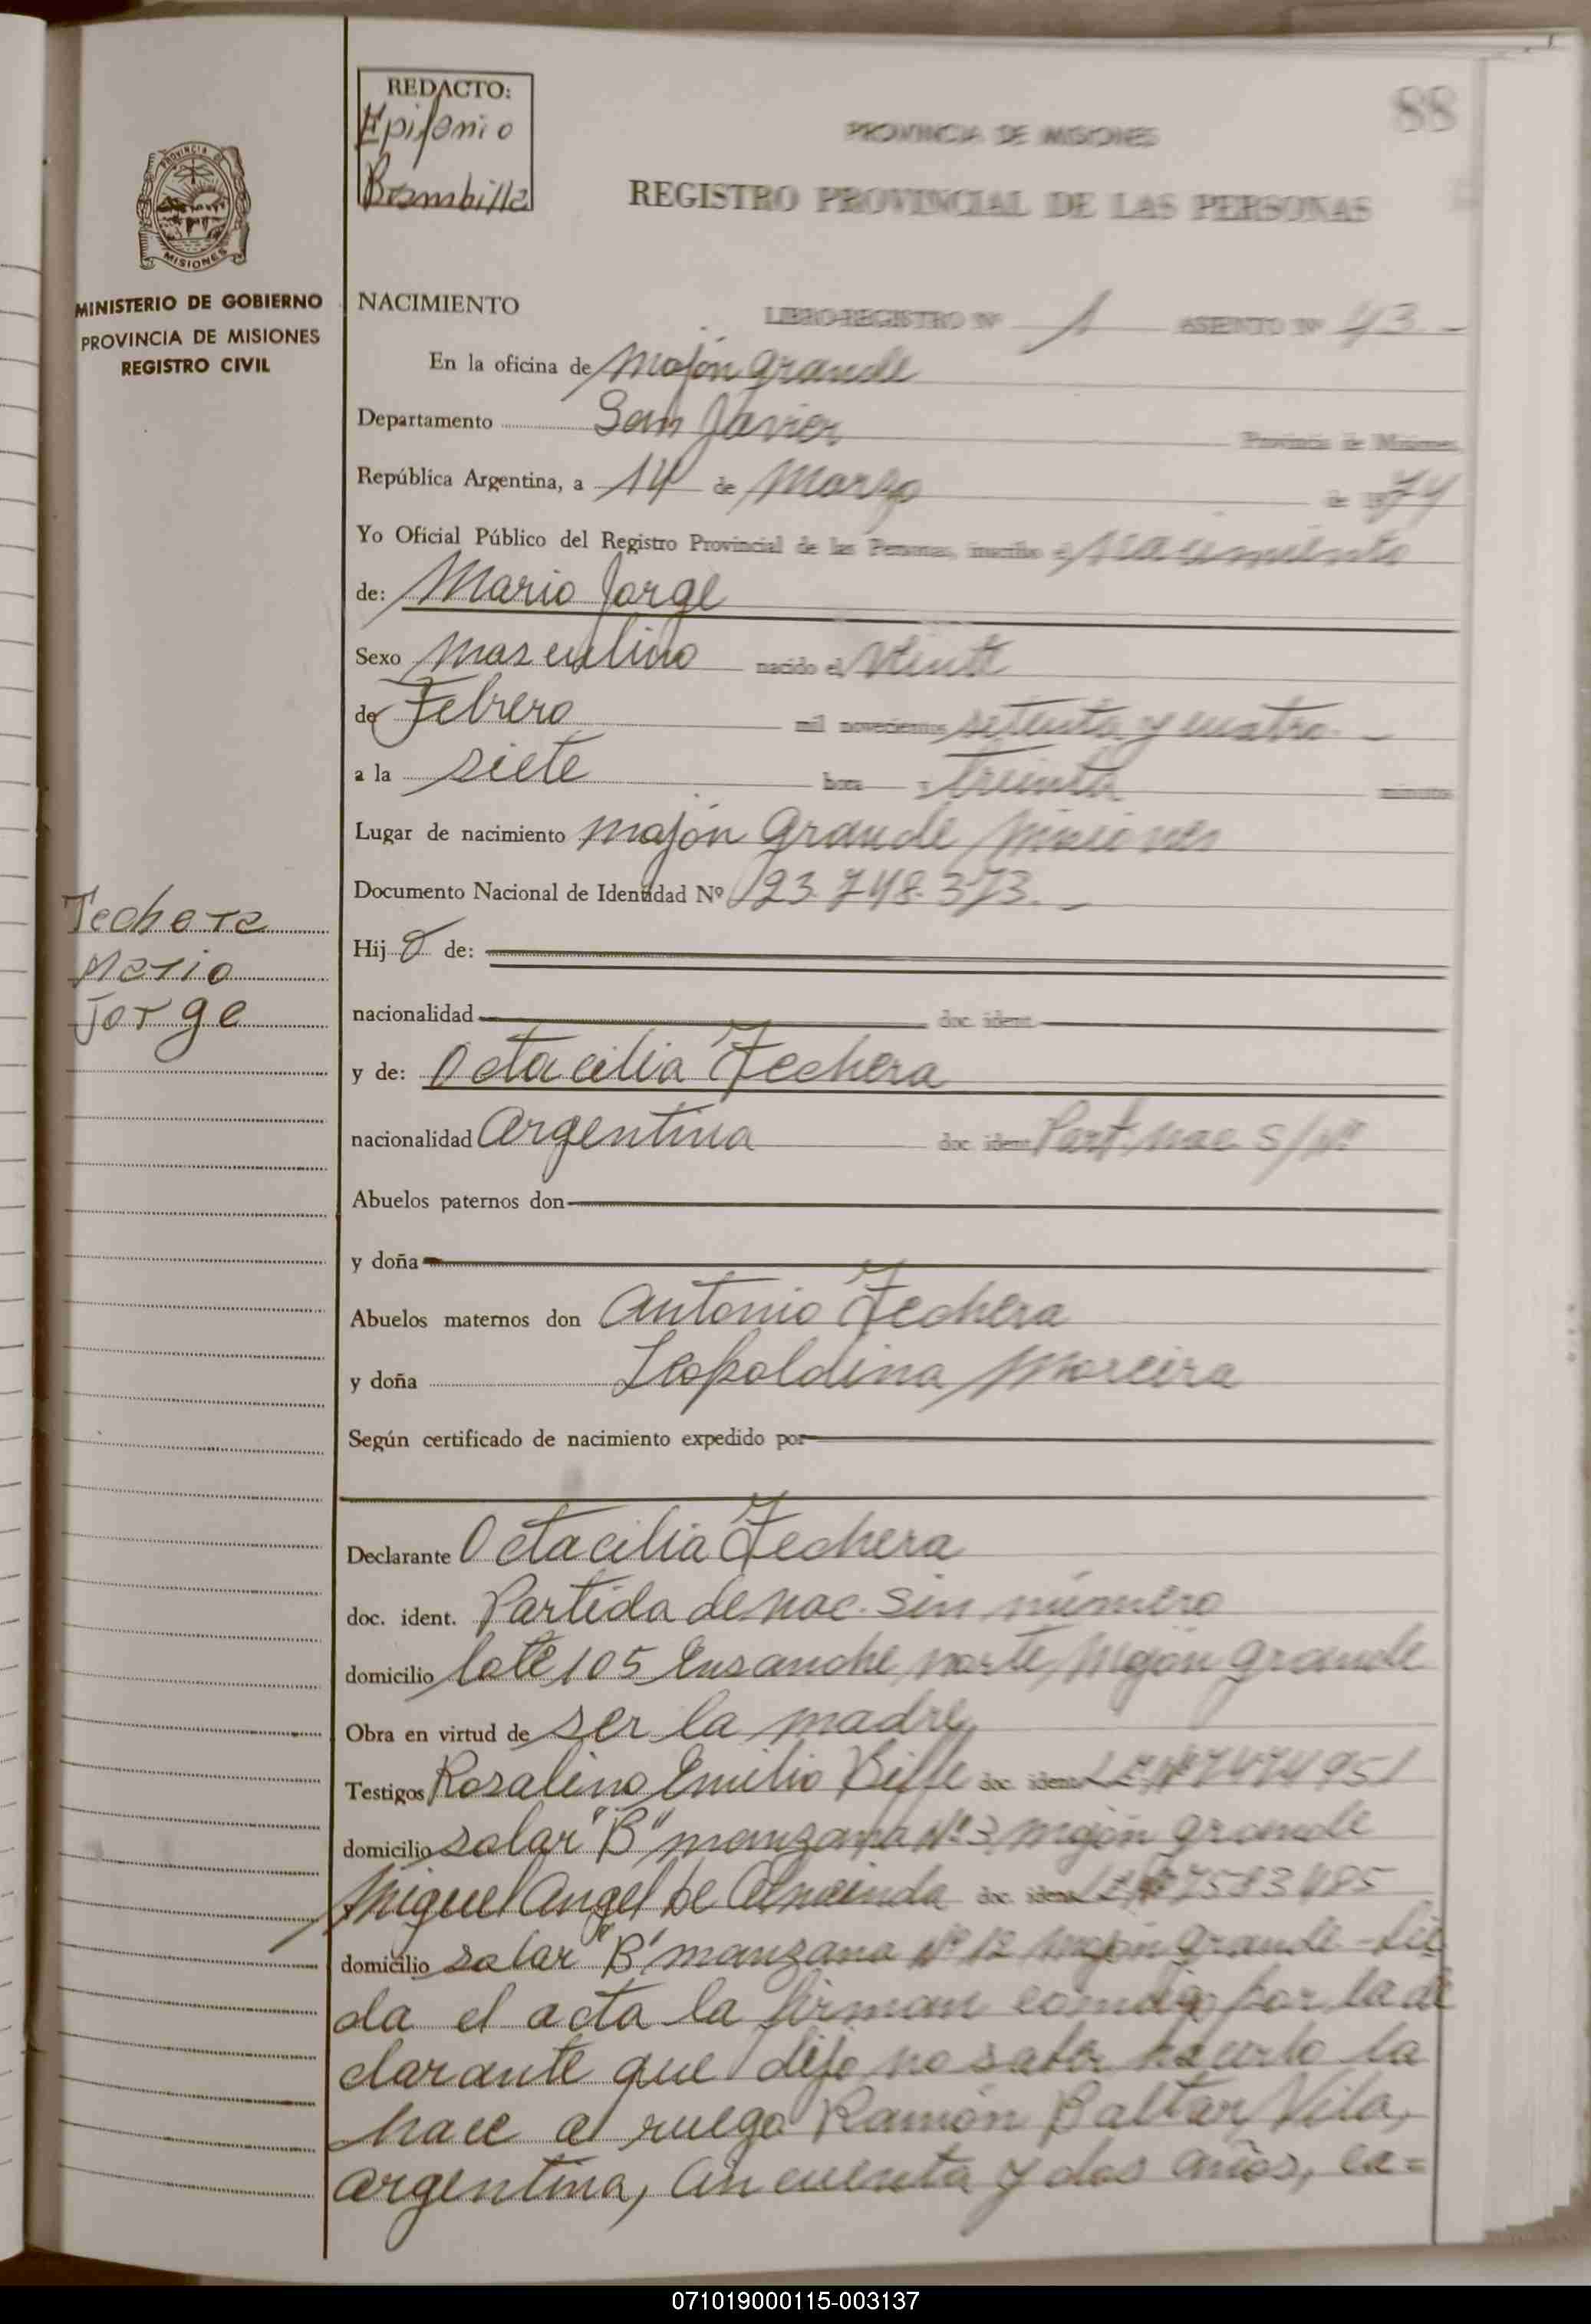 REDACTO:
Epifanio
Brambilla
88
PROVINCIA DE MISIONES
REGISTRO PROVINCIAL DE LAS PERSONAS
PROVINCIA DE
MISIONES
MINISTERIO DE GOBIERNO
PROVINCIA DE MISIONES
REGISTRO CIVIL
NACIMIENTO LIBRO-REGISTRO Nº 1 ASIENTO Nº 43.-
En la oficina de Mojón Grande
Departamento San Javier Provincia de Misiones,
República Argentina, a 14 de Marzo de 1974
Yo Oficial Público del Registro Provincial de las Personas, inscribo el nacimiento
de: Mario Jorge
Sexo masculino nacido el veinte
de Febrero mil novecientos setenta y cuatro.-
a la siete hora y treinta minutos
Lugar de nacimiento Mojón Grande Misiones
Documento Nacional de Identidad Nº 23.748.373.-
Techera
Mario
Jorge
Hijo de:
nacionalidad doc. ident.
y de: Octacilia Techera
nacionalidad Argentina doc. ident. Part. nac S/Nº
Abuelos paternos don
y doña
Abuelos maternos don Antonio Techera
y doña Leopoldina Moreira
Según certificado de nacimiento expedido por
Declarante Octacilia Techera
doc. ident. Partida de nac. sin número
domicilio lote 105 Ensanche norte, Mojón Grande
Obra en virtud de ser la madre
Testigos Rosalino Emilio doc. ident. L.E. Nº 7474951
domicilio solar "B" manzana Nº 3 Mojón Grande
Miguel Angel De Almeinda doc. ident. L.E. Nº 7583485
domicilio solar "B" manzana Nº 12 Mojón Grande - Leí
da el acta la firman conmigo por la de
clarante que dijo no saber hacerlo la
hace a ruego Ramón Baltar Vila,
argentina, cincuenta y dos años, ca=
071019000115-003137